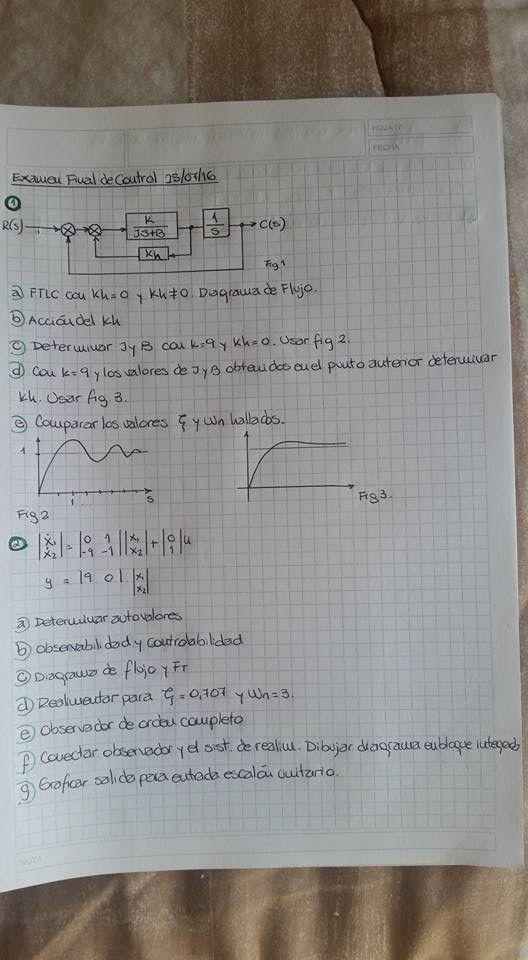 HOJA Nº
FECHA
Examen Final de Control 28/07/16
1
R(s) K JS+B 1 S C(s)
Kh
Fig 1
a) FTLC con Kh=0 y Kh≠0. Diagrama de Flujo.
b) Acción del Kh
c) Determinar J y B con K=9 y Kh=0. Usar fig 2.
d) Con K=9 y los valores de J y B obtenidos en el punto anterior determinar
Kh. Usar fig. 3.
e) Comparar los valores ξ y Wn hallados.
1
1 S
Fig 2
Fig 3.
2 |ẋ1 ẋ2| = |0 1 -9 -1| |x1 x2| + |0 1| u
y = |9 0| . |x1 x2|
a) Determinar autovalores
b) Observabilidad y Controlabilidad
c) Diagrama de flujo y Fr
d) Realimentar para ξ = 0,707 y Wn=3.
e) Observador de orden completo
f) Conectar observador y el sist. de realim. Dibujar diagrama en bloque integrado
g) Graficar salida para entrada escalón unitario.
NOTA